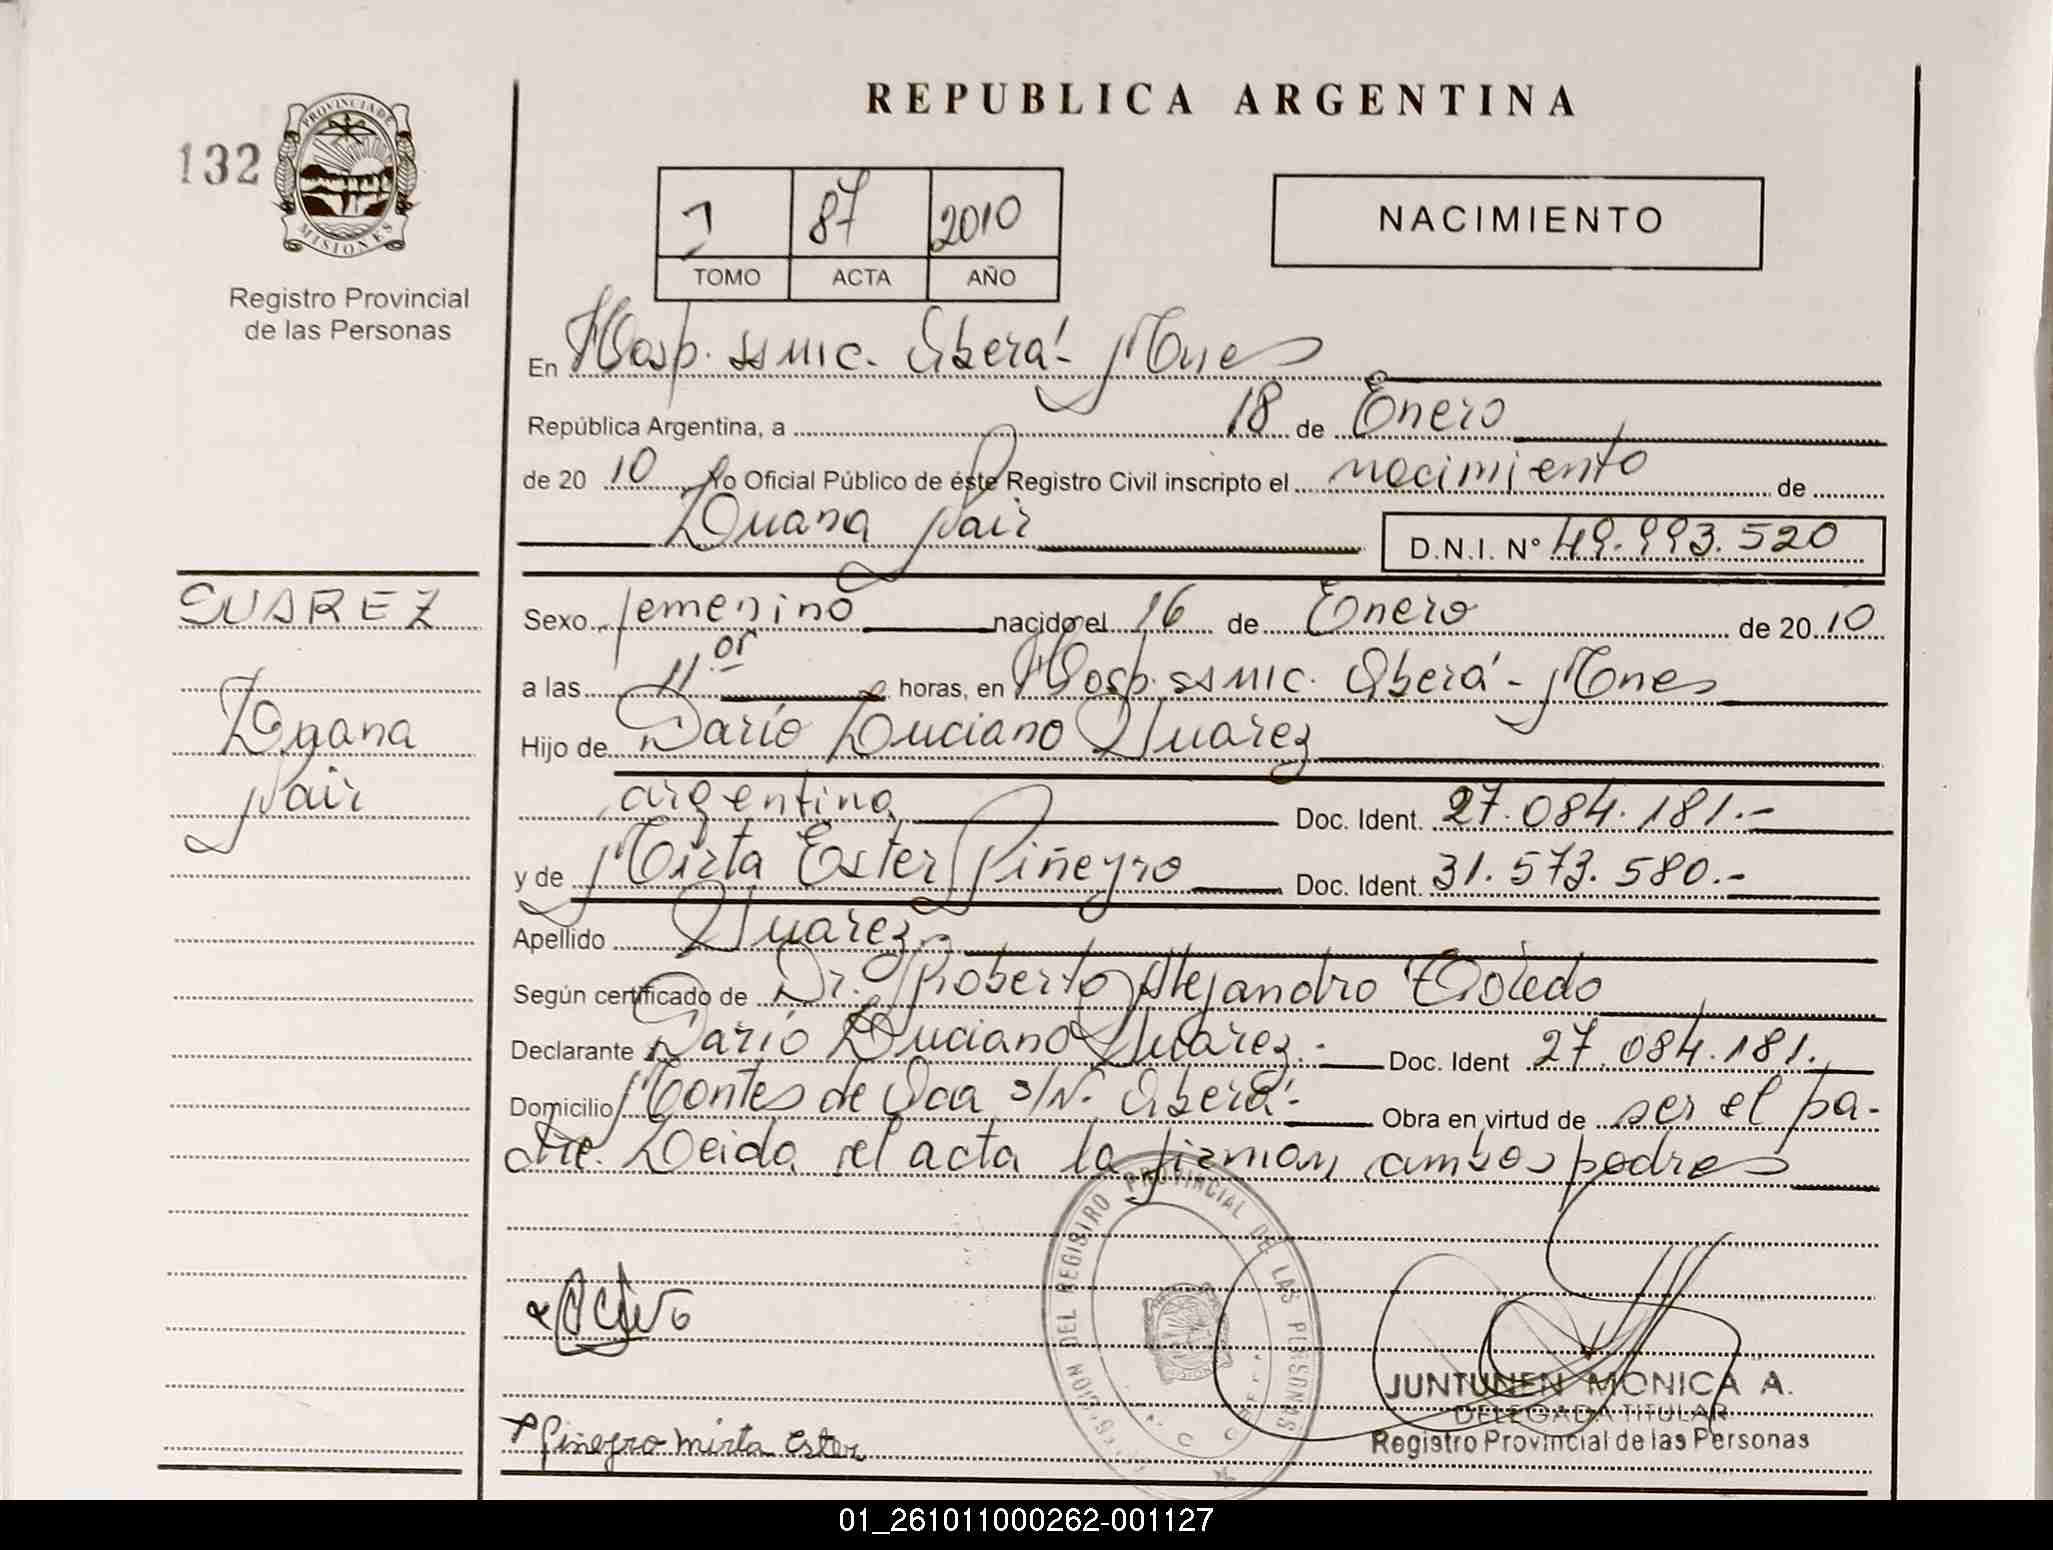 REPUBLICA ARGENTINA
132
PROVINCIA DE
MISIONES
Registro Provincial
de las Personas
1 87 2010
TOMO ACTA AÑO
NACIMIENTO
En Hosp. SSMIC. Oberá - Mnes
República Argentina, a 18 de Enero
de 20 10 Yo Oficial Público de éste Registro Civil inscripto el nacimiento de
Luana Nair
D.N.I. Nº 49.993.520
SUAREZ
Luana
Nair
Sexo femenino nacido el 16 de Enero de 20 10
a las 11 horas, en Hosp. SSMIC. Oberá - Mnes
Hijo de Darío Luciano Suarez
argentina Doc. Ident. 27.084.181.-
y de Mirta Ester Piñeyro Doc. Ident. 31.573.580.-
Apellido Suarez.-
Según certificado de Dr. Roberto Alejandro Toledo
Declarante Darío Luciano Suarez.- Doc. Ident 27.084.181.
Domicilio Montes de Oca S/N. Oberá.- Obra en virtud de ser el pa-
dre. Leida el acta la firman ambos padres
DEL REGISTRO PROVINCIAL DE LAS PERSONAS
JUNTUNEN MONICA A.
DELEGADA TITULAR
Registro Provincial de las Personas
Piñeyro Mirta Ester
01_261011000262-001127